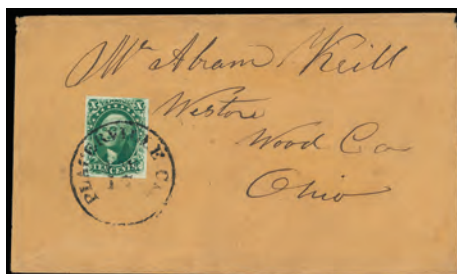 Mr Abram Keill
Weston
Wood Co
Ohio
X X
TEN CENTS
PLACERVILLE Cal